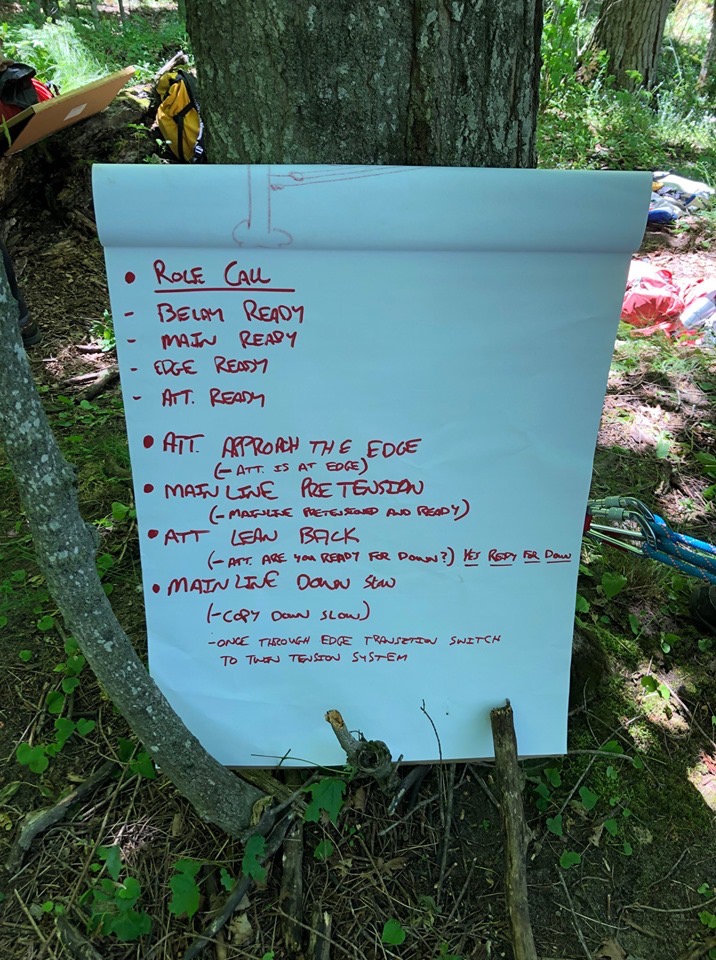 • ROLE CALL
- BELAY READY
- MAIN READY
- EDGE READY
- ATT. READY
• ATT. APPROACH THE EDGE
(- ATT. IS AT EDGE)
• MAINLINE PRETENSION
(- MAINLINE PRETENSIONED AND READY)
• ATT LEAN BACK
(- ATT. ARE YOU READY FOR DOWN?) YES READY FOR DOWN
• MAINLINE DOWN SLOW
(- COPY DOWN SLOW)
- ONCE THROUGH EDGE TRANSITION SWITCH
TO TWIN TENSION SYSTEM